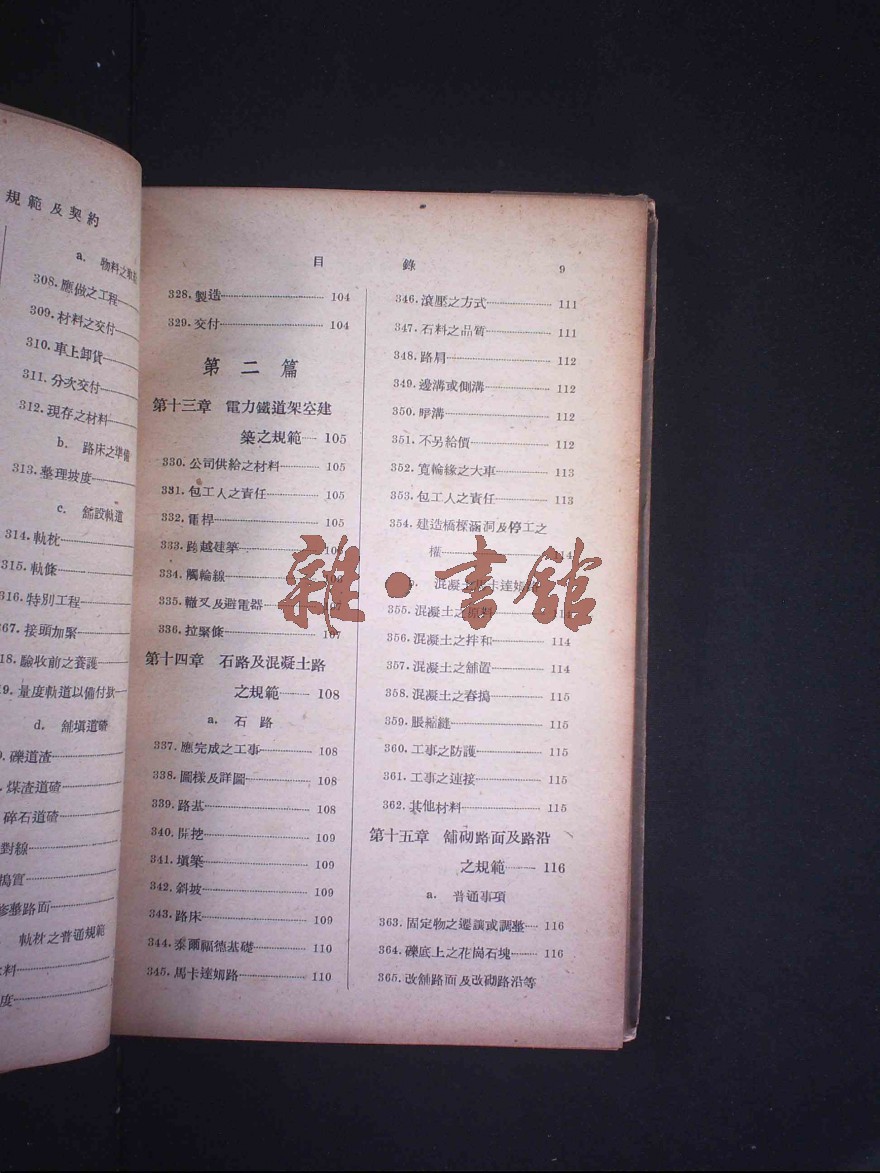 規範及契約
a. 物料之
308. 應做之工程
309. 材料之交付
310. 車上卸貨
311. 分次交付
312. 現存之材料
b. 路床之準備
313. 整理坡度
c. 舖設軌道
314. 軌枕
315. 軌條
316. 特別工程
67. 接頭加緊
18. 驗收前之養護
9. 量度軌道以備付款
d. 舖填道碴
礫道渣
煤渣道碴
碎石道碴
對線
搗實
修整路面
軌枕之普通規範
料
度
目 錄 9
328. 製造 104
329. 交付 104
第二篇
第十三章 電力鐵道架空建
築之規範 105
330. 公司供給之材料 105
331. 包工人之責任 105
332. 電桿 105
333. 跨越建築
334. 觸輪線
335. 轍叉及避電器 107
336. 拉緊條 107
第十四章 石路及混凝土路
之規範 108
a. 石路
337. 應完成之工事 108
338. 圖樣及詳圖 108
339. 路基 108
340. 開挖 109
341. 塡築 109
342. 斜坡 109
343. 路床 109
344. 泰爾福德基礎 110
345. 馬卡達姆路 110
346. 滾壓之方式 111
347. 石料之品質 111
348. 路肩 112
349. 邊溝或側溝 112
350. 甽溝 112
351. 不另給價 112
352. 寬輪緣之大車 113
353. 包工人之責任 113
354. 建造橋樑涵洞及停工之
權 114
b. 混凝土馬卡達姆路
355. 混凝土之原料 114
356. 混凝土之拌和 114
357. 混凝土之舖置 114
358. 混凝土之舂搗 115
359. 脹縮縫 115
360. 工事之防護 115
361. 工事之連接 115
362. 其他材料 115
第十五章 舖砌路面及路沿
之規範 116
a. 普通事項
363. 固定物之遷讓或調整 116
364. 礫底上之花崗石塊 116
365. 改舖路面及改砌路沿等
雜·書館